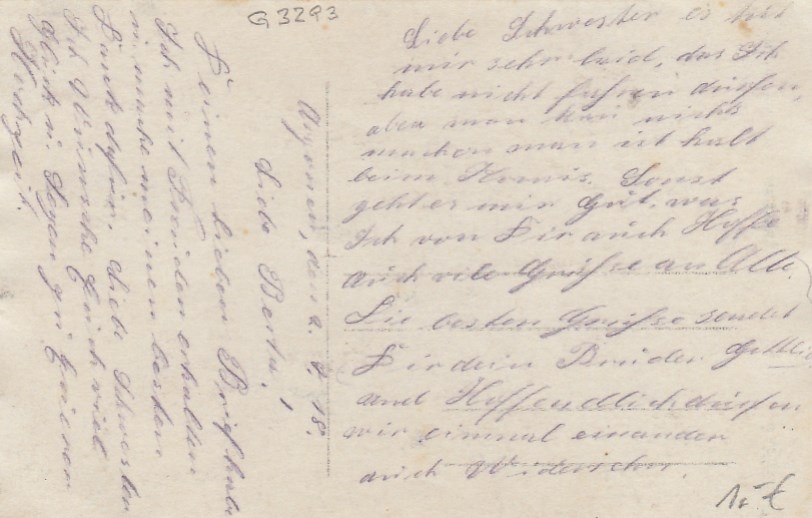 G 3293
Argonnen, den 2. 4. 18.
Liebe Berta!
Deinen lieben Brief habe
Ich mit Freuden erhalten
u. mache meinen besten
Dank dafür. Liebe Schwester
Ich Wünsche Euch viel
Glück u. Segen zu Euerer
Hochzeit.
Liebe Schwester es tut
mir sehr leid, das Ich
habe nicht fahren dürfen,
aber man kan nichts
machen man ist halt
beim Komis. Sonst
geht es mir Gut, was
Ich von Dir auch Hoffe
auch viele Grüsse an Alle.
Die besten Grüsse sendet
Dir dein Bruder
und Hoffendlich dürfen
wir einmal einander
auch Widersehn.